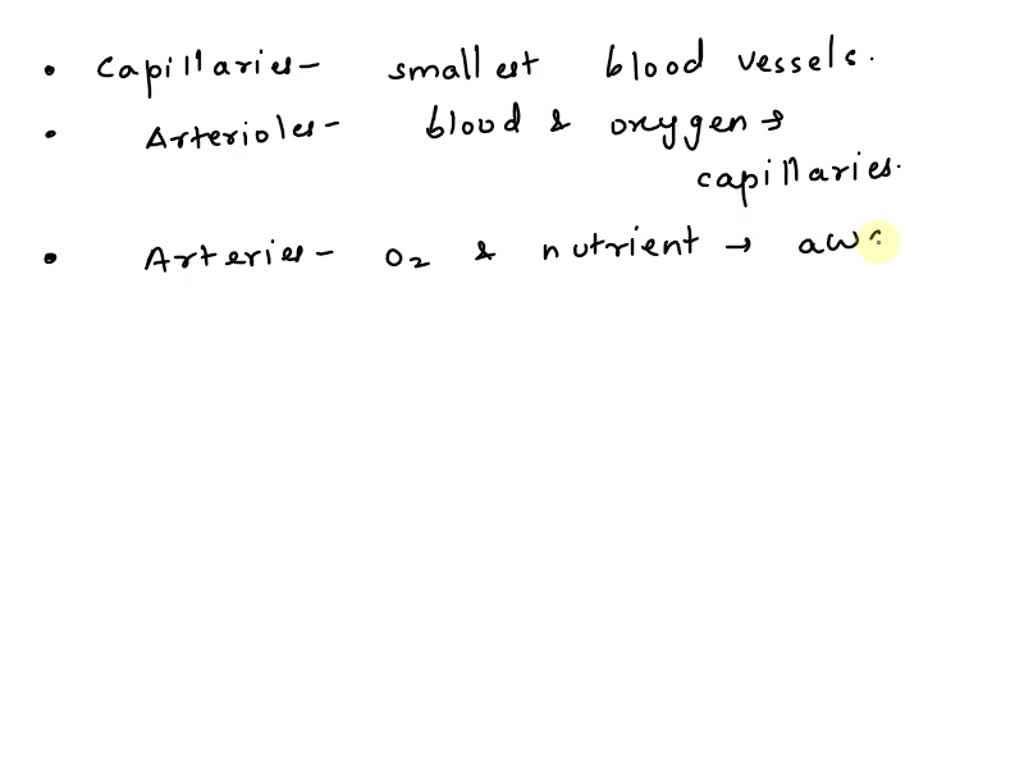 • Capillaries – smallest blood vessels.
• Arterioles – blood & oxygen →
capillaries.
• Arteries – O2 & nutrient →